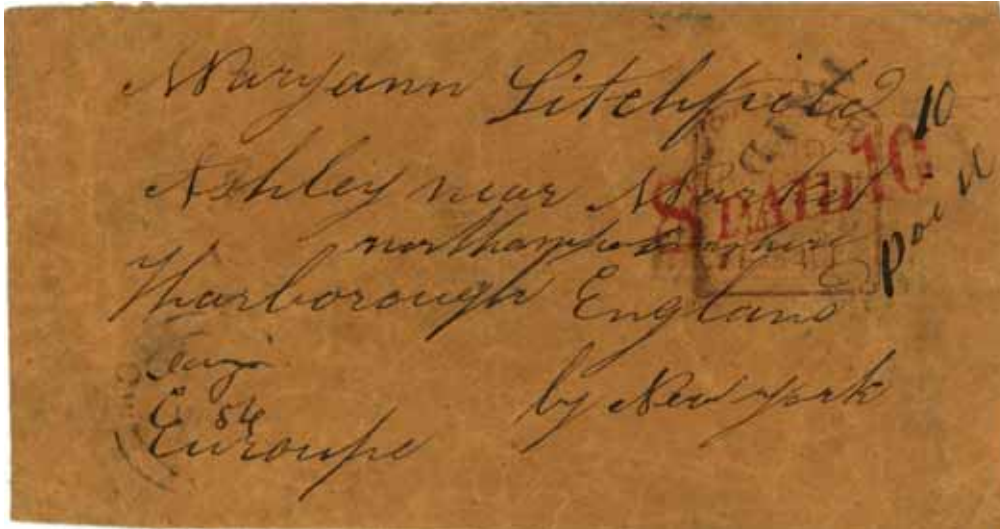 Maryann Litchfield
Ashley near Market
northamptonshire
Harborough England
by New York
Euroupe
8 PAID 10
Paid 10
Aug
54